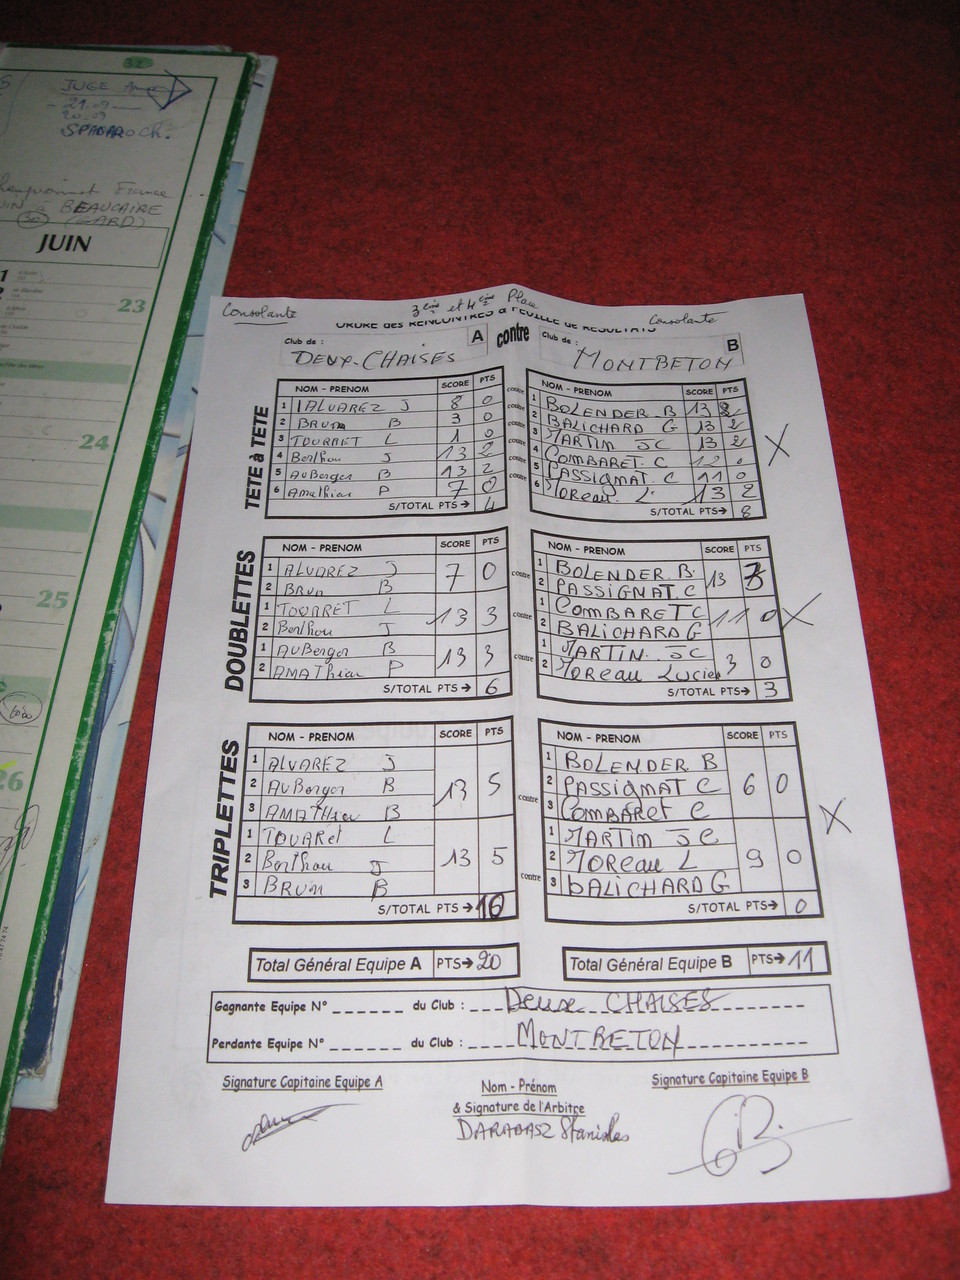 32
JUGE
21.09
20.09
SPADAROCK.
Championnat France
JUIN à BEAUCAIRE
30 (GARD)
JUIN
1
2
23
24
25
26
Consolante
3ème et 4ème Place
Consolante
ORDRE des RENCONTRES & FEUILLE de RESULTATS
Club de : A contre Club de : B
DEUX-CHAISES MONTBETON
TETE à TETE
NOM - PRENOM SCORE PTS NOM - PRENOM SCORE PTS
1 ALVAREZ J 8 0 contre 1 BOLENDER B 13 2
2 BRUN B 3 0 contre 2 BALICHARD G 13 2
3 TOURRET L 1 0 contre 3 MARTIN JC 13 2 X
4 Berthou J 13 2 contre 4 COMBARET C 12 0
5 AuBerger B 13 2 contre 5 PASSIGNAT C 11 0
6 Amathieu P 7 0 contre 6 Moreau L 13 2
S/TOTAL PTS→ 4 S/TOTAL PTS→ 8
DOUBLETTES
NOM - PRENOM SCORE PTS NOM - PRENOM SCORE PTS
1 ALVAREZ J 7 0 contre 1 BOLENDER B. 13 3
2 Brun B 2 PASSIGNAT C
1 TOURRET L 13 3 contre 1 COMBARET C 11 0 X
2 Berthou J 2 BALICHARD G
1 AuBerger B 13 3 contre 1 MARTIN JC 3 0
2 AMATHieu P 2 Moreau Lucien
S/TOTAL PTS→ 6 S/TOTAL PTS→ 3
TRIPLETTES
NOM - PRENOM SCORE PTS NOM - PRENOM SCORE PTS
1 ALVAREZ J 1 BOLENDER B
2 AuBerger B 13 5 contre 2 PASSIGNAT C 6 0
3 AMATHieu B 3 COMBARET C X
1 TOURRET L 1 MARTIN JC
2 Berthou J 13 5 contre 2 MOREAU L 9 0
3 BRUN B 3 BALICHARD G
S/TOTAL PTS→ 10 S/TOTAL PTS→ 0
Total Général Equipe A PTS→ 20 Total Général Equipe B PTS→ 11
Gagnante Equipe N° ______ du Club : Deux CHAISES
Perdante Equipe N° ______ du Club : MONTBETON
Signature Capitaine Equipe A Nom - Prénom Signature Capitaine Equipe B
& Signature de l'Arbitre
DARABASZ Stanislas